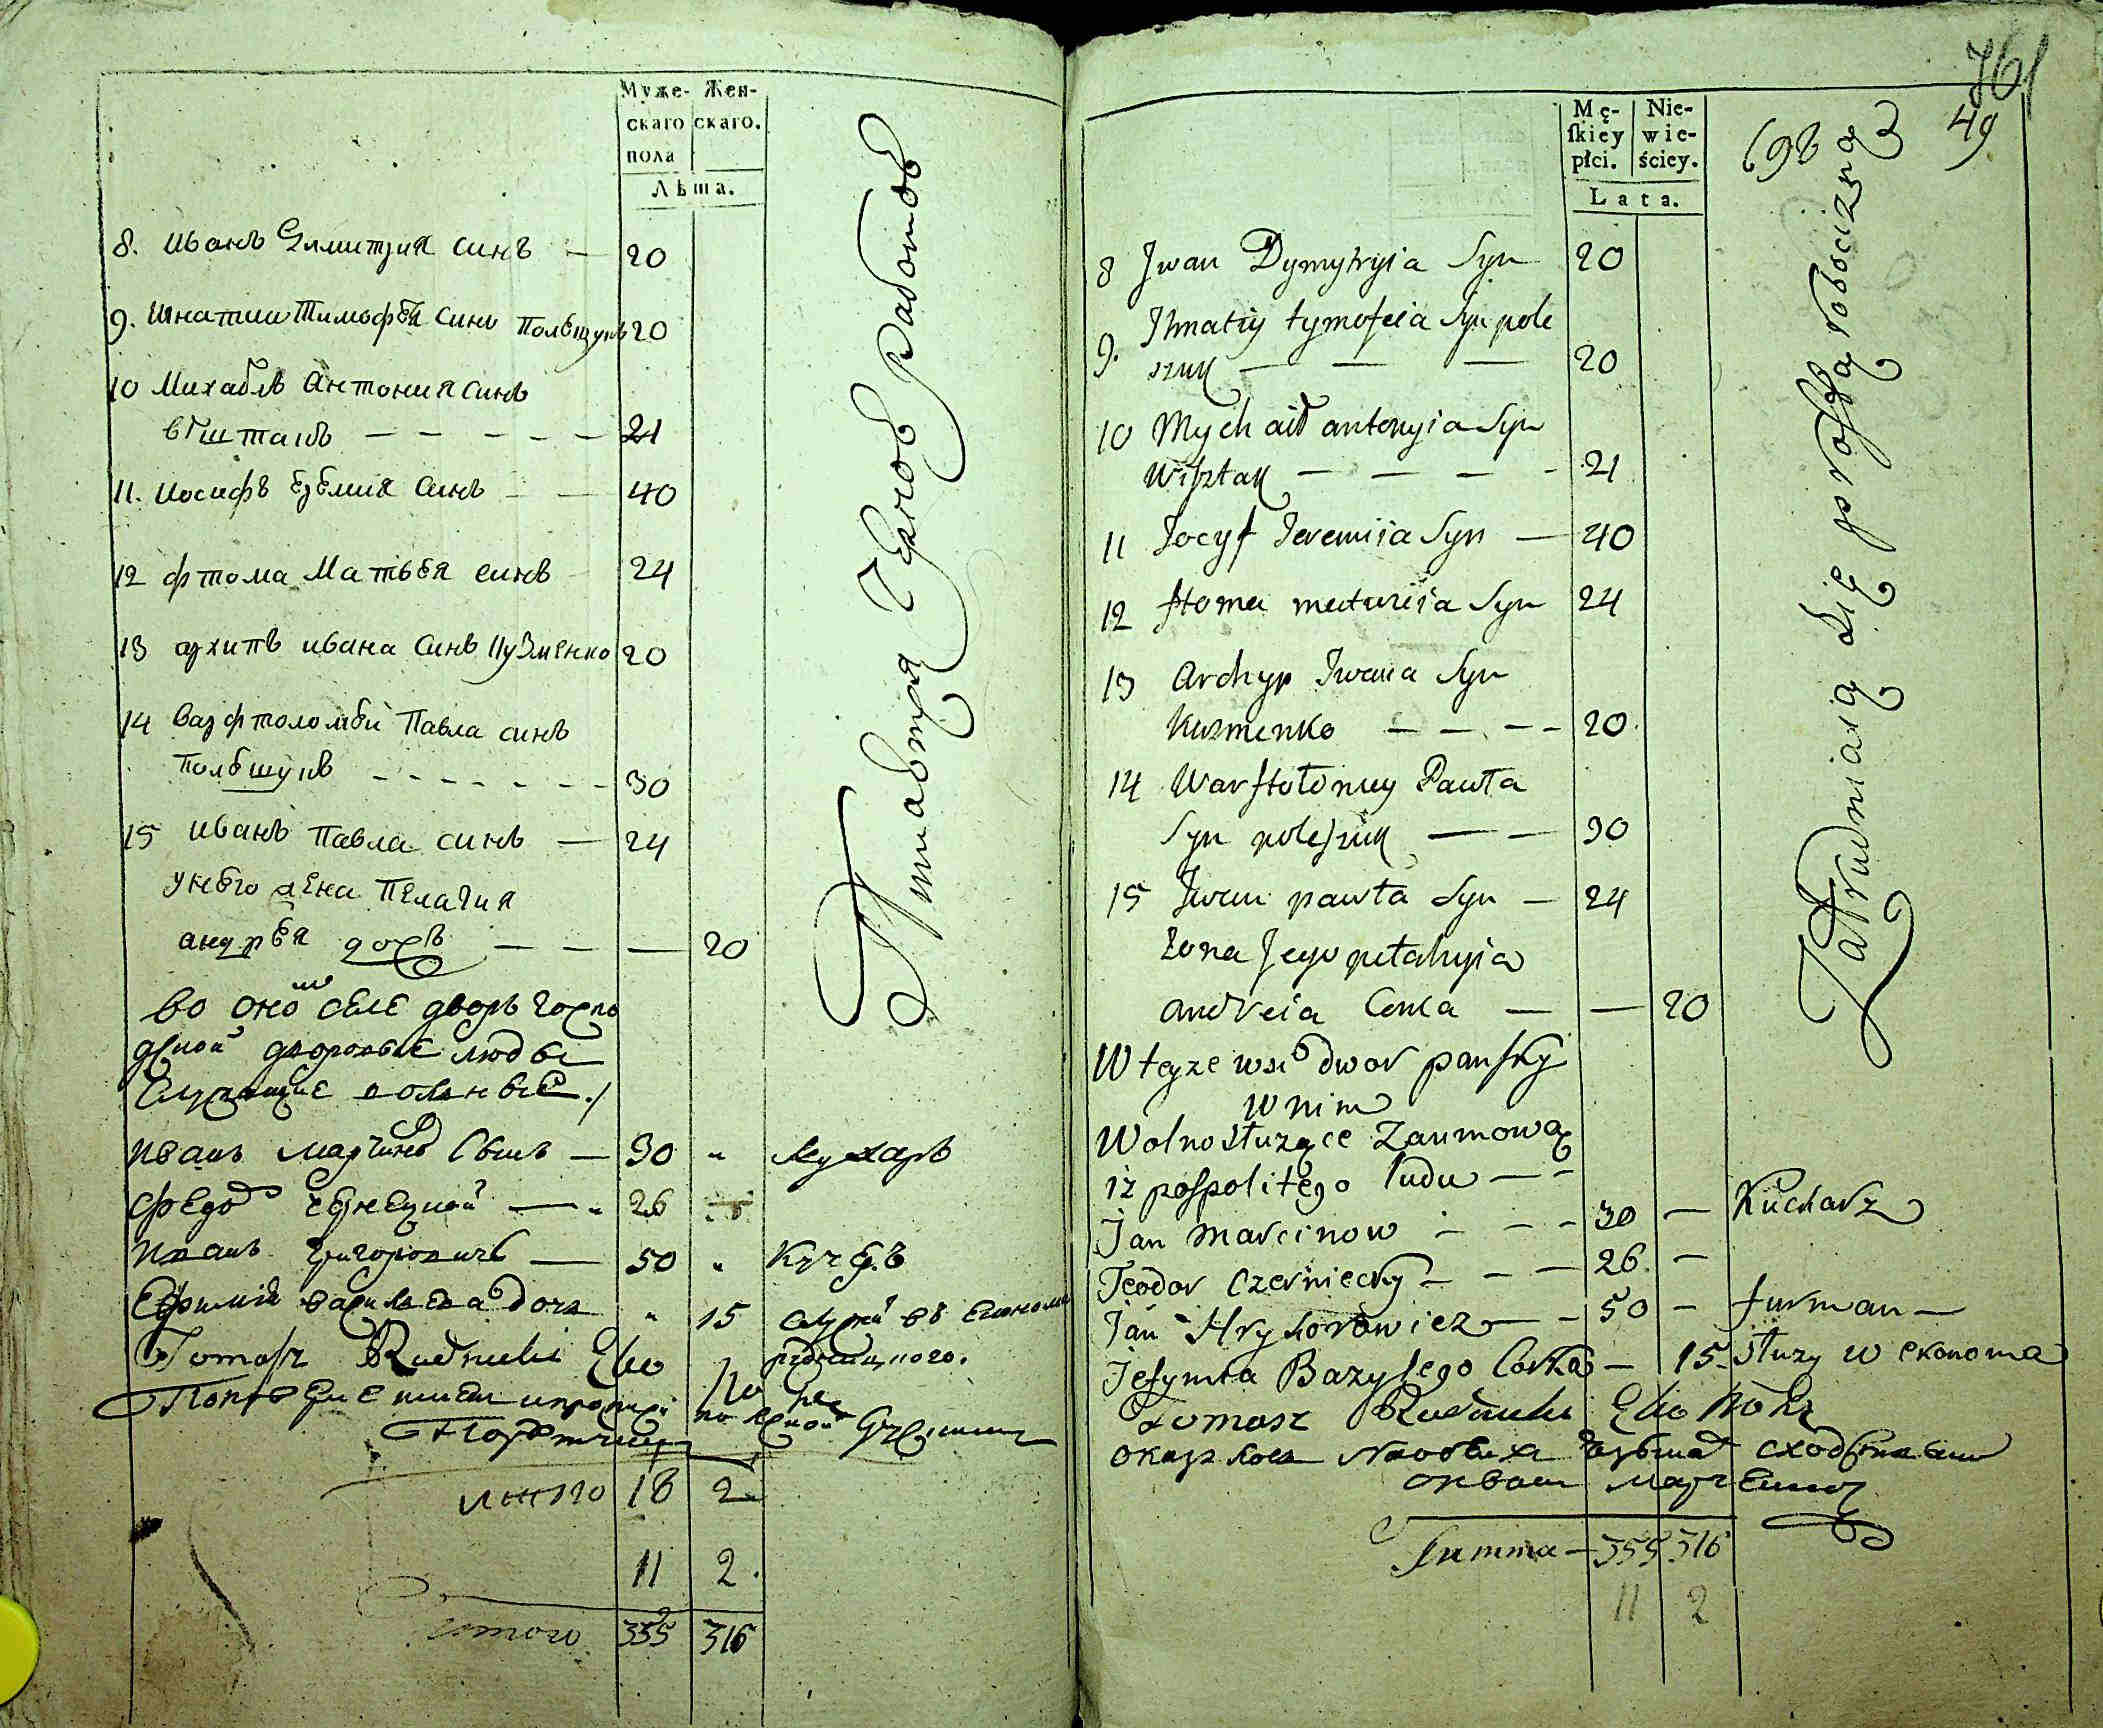 Муже-
скаго
пола
Жен-
скаго.
Лѣта.
8. иванъ Димитрия синъ — 20
9. игнатии Тимофѣя синъ Полѣщукъ 20
10 Михаблъ антония синъ
вѣштакъ - - - - - 21
11. иосифъ Ерѣмия синъ - - 40
12 фтома Матвѣя синъ 24
13 архипъ ивана синъ Кузменко 20
14 варфтоломѣй Павла синъ
Полѣшукъ - - - - - - - 30
15 иванъ Павла синъ — 24
унѣго жена Пелагия
андрѣя дочь — — — 20
во оно селе дворъ госпо
дской дворовые люде
служащие волные
иванъ марчинъ — 30 " кухаръ
Федо чернецкой — " 26
иванъ григоровичъ — 50 " кучеръ
Ефимия василева дочь " 15
Tomasz Rudnicki
итого 18 2
11 2.
итого 355 316
работою
761
49
698
Mę-
ſkiey
płci.
Nie-
wie-
ściey.
Lata.
8 Jwan Dymytryia Syn 20
9. Jhnatiy tymofeia Syn pole
szuk — — — 20
10 Mychaił antonyia Syn
Wisztak — — — - 21
11 Jocyf Jeremiia Syn — 40
12 ftoma matwiia Syn 24
13 Archyp Jwana Syn
Kuzmenko - - - - 20
14 Warftołomey Pawła
Syn poleszuk — — 30
15 Jwan pawła Syn — 24
żona Jego pełahyia
andreia Corka — — 20
W teyze wsi dwor panski
w nim
Wolno służące Zaumową
iż pospolitego ludu — -
Jan Marcinow - - - 30 — Kucharz
Teodor Czerniecky - - — 26. —
Jan Hryhorowicz — - 50 - furman —
Jefymia Bazylego Corka — 15 służy w ekonoma
Tomasz Rudnicki
Summa — 355 316
11 2
Zatrudniaią się prostą robocizną